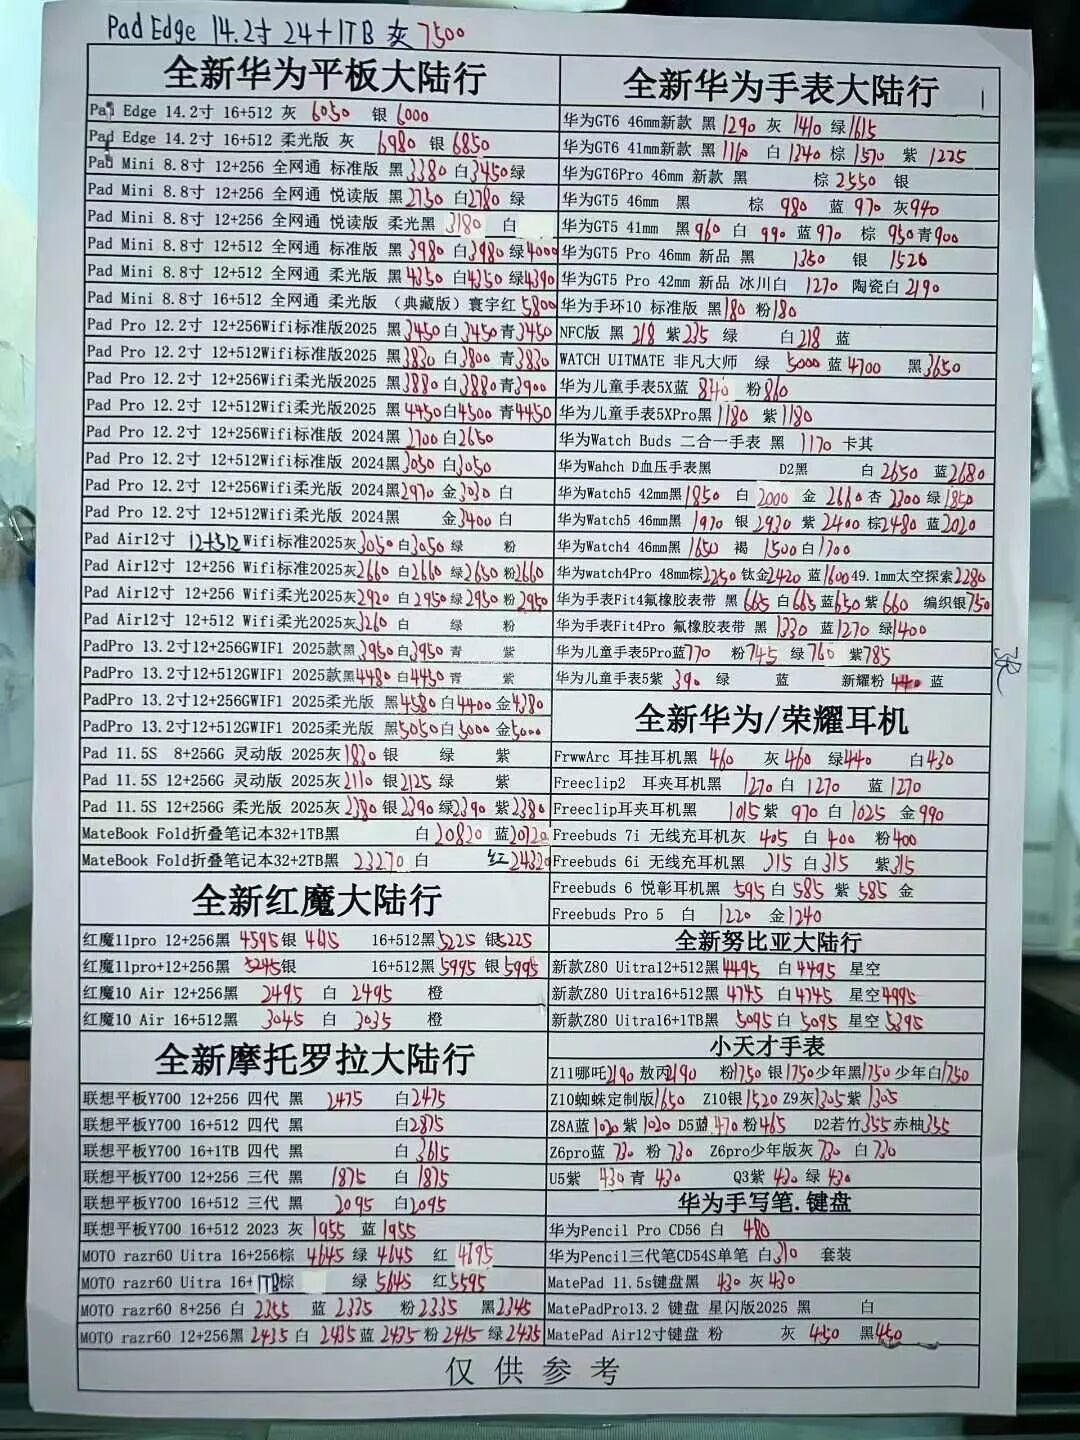 Pad Edge 14.2寸 24+1TB 灰 7500
全新华为平板大陆行
Pad Edge 14.2寸 16+512 灰 6050 银 6000
Pad Edge 14.2寸 16+512 柔光版 灰 6980 银 6850
Pad Mini 8.8寸 12+256 全网通 标准版 黑3380 白3450绿
Pad Mini 8.8寸 12+256 全网通 悦读版 黑2750 白2780 绿
Pad Mini 8.8寸 12+256 全网通 悦读版 柔光黑 3180 白
Pad Mini 8.8寸 12+512 全网通 标准版 黑3980 白3980 绿4000
Pad Mini 8.8寸 12+512 全网通 柔光版 黑4350 白4350 绿4390
Pad Mini 8.8寸 16+512 全网通 柔光版 （典藏版）寰宇红 5800
Pad Pro 12.2寸 12+256Wifi标准版2025 黑3450白3450青3450
Pad Pro 12.2寸 12+512Wifi标准版2025 黑3830白3800 青3830
Pad Pro 12.2寸 12+256Wifi柔光版2025 黑3880白3880青3900
Pad Pro 12.2寸 12+512Wifi柔光版2025 黑4450白4500 青4450
Pad Pro 12.2寸 12+256Wifi标准版 2024黑2700 白2650
Pad Pro 12.2寸 12+512Wifi标准版 2024黑3050 白3050
Pad Pro 12.2寸 12+256Wifi柔光版 2024黑2970 金3030 白
Pad Pro 12.2寸 12+512Wifi柔光版 2024黑 金3400 白
Pad Air12寸 12+512 Wifi标准2025灰3050白3050 绿 粉
Pad Air12寸 12+256 Wifi标准2025灰2660 白2660 绿2650粉2660
Pad Air12寸 12+256 Wifi柔光2025灰2920 白2950绿2950粉2950
Pad Air12寸 12+512 Wifi柔光2025灰3260 白 绿 粉
PadPro 13.2寸12+256GWIF1 2025款黑3950白3950 青 紫
PadPro 13.2寸12+512GWIF1 2025款黑4480白4450 青 紫
PadPro 13.2寸12+256GWIF1 2025柔光版 黑4580白4400 金4380
PadPro 13.2寸12+512GWIF1 2025柔光版 黑5050白5000 金5000
Pad 11.5S 8+256G 灵动版 2025灰1820 银 绿 紫
Pad 11.5S 12+256G 灵动版 2025灰2110 银2125 绿 紫
Pad 11.5S 12+256G 柔光版 2025灰2380银2390绿2390 紫2380
MateBook Fold折叠笔记本32+1TB黑 白20820 蓝20720
MateBook Fold折叠笔记本32+2TB黑 23270 白 红24320
全新红魔大陆行
红魔11pro 12+256黑 4595银 16+512黑5225 银5225
红魔11pro+12+256黑 5245银 16+512黑5995 银5995
红魔10 Air 12+256黑 2495 白 2495 橙
红魔10 Air 16+512黑 3045 白 3035 橙
全新摩托罗拉大陆行
联想平板Y700 12+256 四代 黑 2475 白2475
联想平板Y700 16+512 四代 黑 白2875
联想平板Y700 16+1TB 四代 黑 白3615
联想平板Y700 12+256 三代 黑 1875 白1875
联想平板Y700 16+512 三代 黑 2095 白2095
联想平板Y700 16+512 2023 灰 1955 蓝1955
MOTO razr60 Uitra 16+256棕 4645 绿 4645 红 4695
MOTO razr60 Uitra 16+1TB棕 绿 5645 红5595
MOTO razr60 8+256 白 2355 蓝 2335 粉2335 黑2345
MOTO razr60 12+256黑2435白 2435蓝 2435粉2415 绿2425
全新华为手表大陆行
华为GT6 46mm新款 黑1290 灰 1410 绿1615
华为GT6 41mm新款 黑1160 白1340 棕 1570 紫 1225
华为GT6Pro 46mm 新款 黑 棕2550 银
华为GT5 46mm 黑 棕 980 蓝 970 灰940
华为GT5 41mm 黑960 白 990 蓝970 棕 950青900
华为GT5 Pro 46mm 新品 黑 1350 银 1520
华为GT5 Pro 42mm 新品 冰川白 1270 陶瓷白2190
华为手环10 标准版 黑180 粉180
NFC版 黑 218 紫235 绿 白218 蓝
WATCH UITMATE 非凡大师 绿 5000 蓝4700 黑3650
华为儿童手表5X蓝 840 粉860
华为儿童手表5XPro黑1180 紫1180
华为Watch Buds 二合一手表 黑 1170 卡其
华为Wahch D血压手表黑 D2黑 白 2650 蓝2680
华为Watch5 42mm黑1850 白 2000 金 2660杏 2300绿1850
华为Watch5 46mm黑 1970 银 2930 紫 2400 棕2480 蓝2020
华为Watch4 46mm黑 1650 褐 1500白1700
华为watch4Pro 48mm棕2250 钛金2420 蓝160049.1mm太空探索2280
华为手表Fit4氟橡胶表带 黑 665 白665蓝650紫660 编织银750
华为手表Fit4Pro 氟橡胶表带 黑 1330 蓝1270 绿1400
华为儿童手表5Pro蓝770 粉745 绿 760 紫785
华为儿童手表5紫 390 绿 蓝 新耀粉 蓝
全新华为/荣耀耳机
FrwwArc 耳挂耳机黑 460 灰460 绿440 白430
Freeclip2 耳夹耳机黑 1270 白 1270 蓝1270
Freeclip耳夹耳机黑 1015 紫 970 白 1025 金990
Freebuds 7i 无线充耳机灰 405 白 400 粉400
Freebuds 6i 无线充耳机黑 315 白315 紫315
Freebuds 6 悦彰耳机黑 595 白 585 紫 585 金
Freebuds Pro 5 白 1220 金1240
全新努比亚大陆行
新款Z80 Uitra12+512黑4495 白4495 星空
新款Z80 Uitra16+512黑4745 白4745 星空4995
新款Z80 Uitra16+1TB黑 5095白 5095 星空5395
小天才手表
Z11哪吒2190敖丙2190 粉1750银1750少年黑1750少年白1750
Z10蜘蛛定制版1650 Z10银1520Z9灰1305紫1305
Z8A蓝1020 紫 1020 D5蓝470粉465 D2若竹355赤柚355
Z6pro蓝 730 粉 730 Z6pro少年版灰 730 白730
U5紫 430 青 430 Q3紫 430 绿 430
华为手写笔.键盘
华为Pencil Pro CD56 白 480
华为Pencil三代笔CD54S单笔 白310 套装
MatePad 11.5s键盘黑 430 灰430
MatePadPro13.2 键盘 星闪版2025 黑 白
MatePad Air12寸键盘 粉 灰 450 黑450
仅供参考